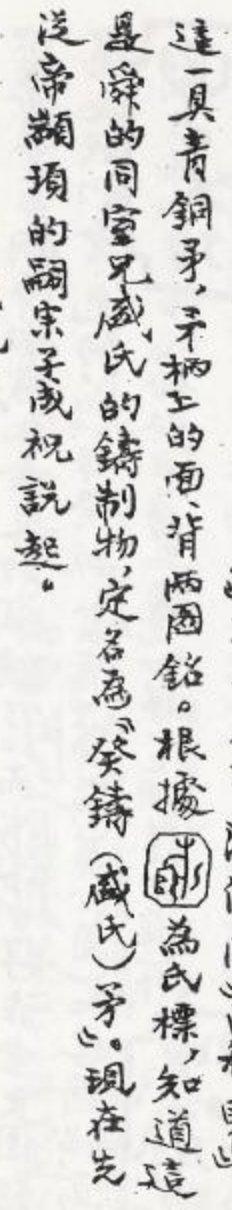 這一具青銅矛，矛柄上的面、背兩圖銘。根據為氏標，知道這
是舜的同室兄咸氏的鑄制物，定名為“癸鑄（咸氏）矛”。現在先
從帝顓頊的嗣宗子成祝說起。